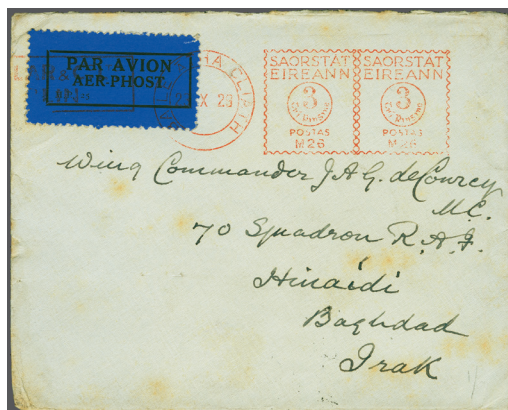 PAR AVION
AER-PHOST
X 29
SAORSTÁT
EIREANN
3
POSTAS
M26
SAORSTÁT
EIREANN
3
POSTAS
M26
Wing Commander J.A.G. deCourcy
M.C.
70 Squadron R.A.F.
Hinaidi
Baghdad
Irak